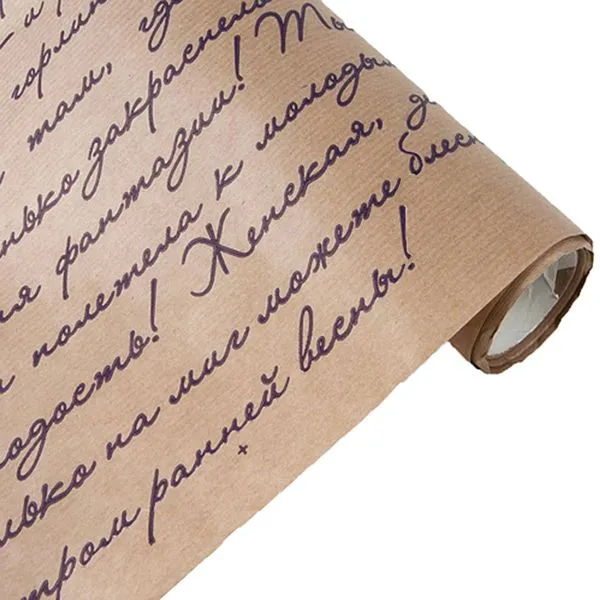 горлин
там, где
лько закраснело
я фантазии! Ты
полетела к молодым
лодость! Женская, д
лько на миг можете блесн
тром ранней весны!